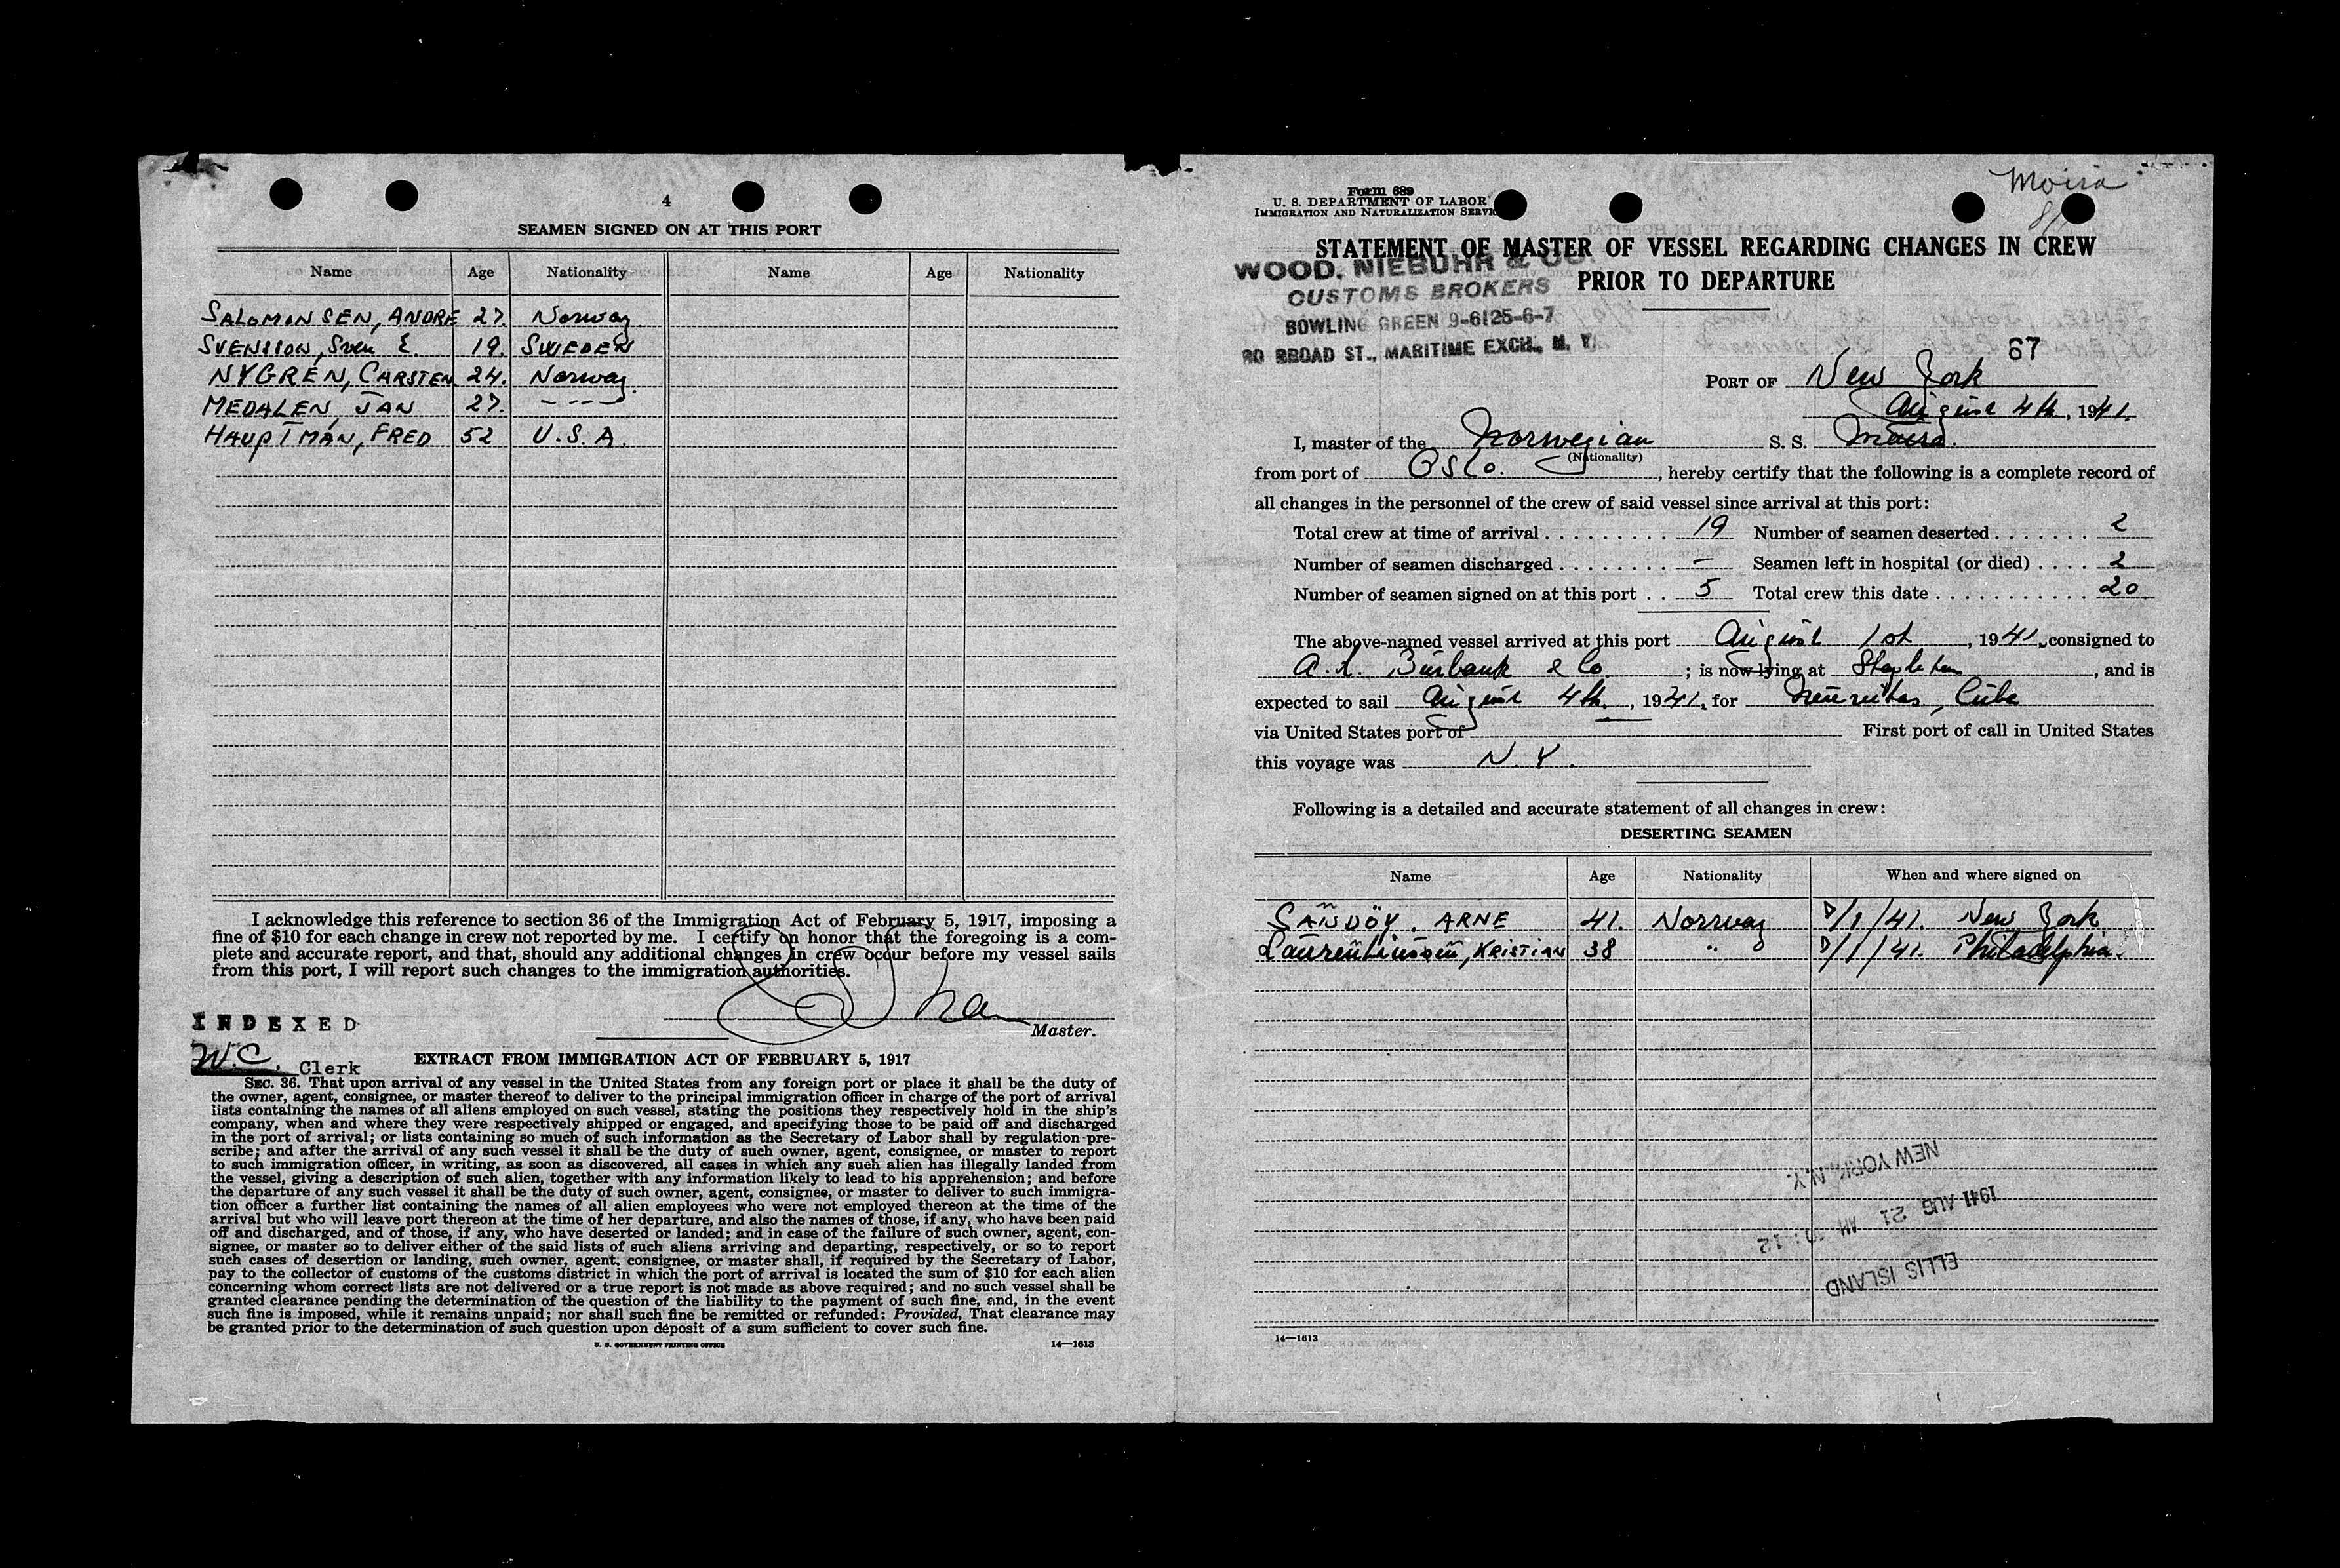 4
SEAMEN SIGNED ON AT THIS PORT
Name Age Nationality Name Age Nationality
SALOMONSEN, ANDRE 27. Norway
SVENSSON, Sven E. 19. SWEDEN
NYGREN, CARSTEN 24. Norway
MEDALEN, JAN 27. - - -
HAUPTMAN, FRED 52 U.S.A.
I acknowledge this reference to section 36 of the Immigration Act of February 5, 1917, imposing a
fine of $10 for each change in crew not reported by me. I certify on honor that the foregoing is a com-
plete and accurate report, and that, should any additional changes in crew occur before my vessel sails
from this port, I will report such changes to the immigration authorities.
Master.
INDEXED
W.C. Clerk
EXTRACT FROM IMMIGRATION ACT OF FEBRUARY 5, 1917
SEC. 36. That upon arrival of any vessel in the United States from any foreign port or place it shall be the duty of
the owner, agent, consignee, or master thereof to deliver to the principal immigration officer in charge of the port of arrival
lists containing the names of all aliens employed on such vessel, stating the positions they respectively hold in the ship's
company, when and where they were respectively shipped or engaged, and specifying those to be paid off and discharged
in the port of arrival; or lists containing so much of such information as the Secretary of Labor shall by regulation pre-
scribe; and after the arrival of any such vessel it shall be the duty of such owner, agent, consignee, or master to report
to such immigration officer, in writing, as soon as discovered, all cases in which any such alien has illegally landed from
the vessel, giving a description of such alien, together with any information likely to lead to his apprehension; and before
the departure of any such vessel it shall be the duty of such owner, agent, consignee, or master to deliver to such immigra-
tion officer a further list containing the names of all alien employees who were not employed thereon at the time of the
arrival but who will leave port thereon at the time of her departure, and also the names of those, if any, who have been paid
off and discharged, and of those, if any, who have deserted or landed; and in case of the failure of such owner, agent, con-
signee, or master so to deliver either of the said lists of such aliens arriving and departing, respectively, or so to report
such cases of desertion or landing, such owner, agent, consignee, or master shall, if required by the Secretary of Labor,
pay to the collector of customs of the customs district in which the port of arrival is located the sum of $10 for each alien
concerning whom correct lists are not delivered or a true report is not made as above required; and no such vessel shall be
granted clearance pending the determination of the question of the liability to the payment of such fine, and, in the event
such fine is imposed, while it remains unpaid; nor shall such fine be remitted or refunded: Provided, That clearance may
be granted prior to the determination of such question upon deposit of a sum sufficient to cover such fine.
U. S. GOVERNMENT PRINTING OFFICE 14—1613
Moira
Form 689
U. S. DEPARTMENT OF LABOR
IMMIGRATION AND NATURALIZATION SERVICE
STATEMENT OF MASTER OF VESSEL REGARDING CHANGES IN CREW
PRIOR TO DEPARTURE
WOOD, NIEBUHR & CO.
CUSTOMS BROKERS
BOWLING GREEN 9-6125-6-7
80 BROAD ST., MARITIME EXCH., N. Y.
67
PORT OF New York
August 4th, 1941.
I, master of the Norwegian S. S. Moira.
(Nationality)
from port of Oslo., hereby certify that the following is a complete record of
all changes in the personnel of the crew of said vessel since arrival at this port:
Total crew at time of arrival . . . . . . . . . 19 Number of seamen deserted . . . . . . . 2
Number of seamen discharged . . . . . . . . — Seamen left in hospital (or died) . . . . 2
Number of seamen signed on at this port . . 5 Total crew this date . . . . . . . . . . . 20
The above-named vessel arrived at this port August 1st, 1941, consigned to
A. L. Burbank & Co.; is now lying at Stapleton, and is
expected to sail August 4th, 1941, for Nuevitas, Cuba
via United States port of First port of call in United States
this voyage was N.Y.
Following is a detailed and accurate statement of all changes in crew:
DESERTING SEAMEN
Name Age Nationality When and where signed on
SANDÖY, ARNE 41. Norway /1/41. New York
Laurentiussen, KRISTIAN 38 " /1/41. Philadelphia.
NEW YORK, N.Y.
1941 AUG 21 AM
ELLIS ISLAND
14—1613